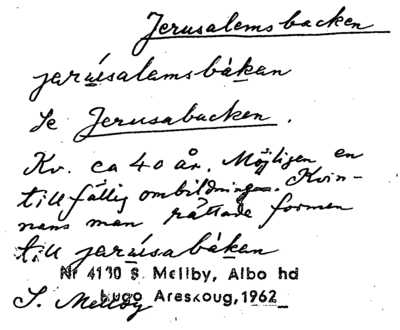 Jerusalemsbacken
jarúsalamsbàkan
Se Jerusabacken.
Kv. ca 40 år. Möjligen en
tillfällig ombildning. Kvin-
nans man rättade formen
till jarúsabàkan
Nr 4130 S. Mellby, Albo hd
S. Mellby Hugo Areskoug, 1962